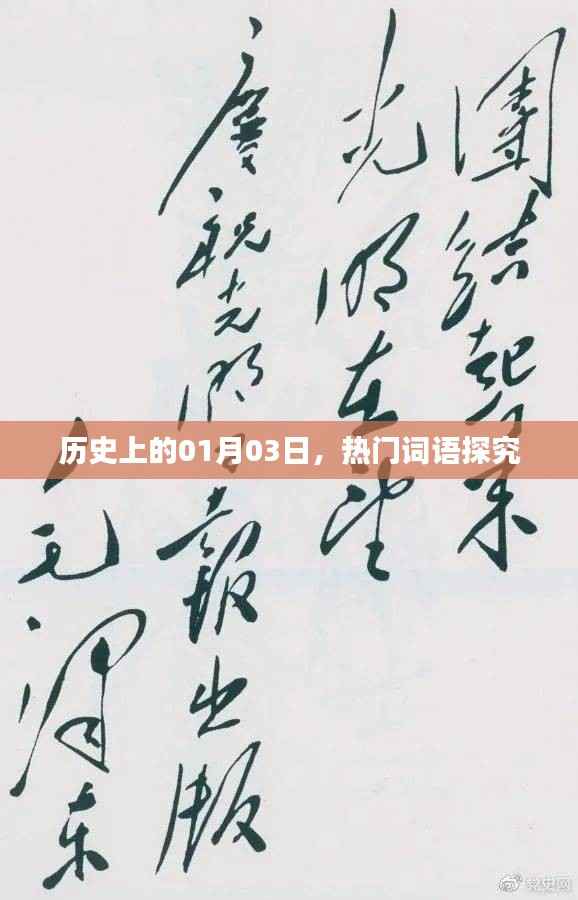 團結起来
光明在望
慶祝光明日報出版
毛澤东
历史上的01月03日，热门词语探究
党史网